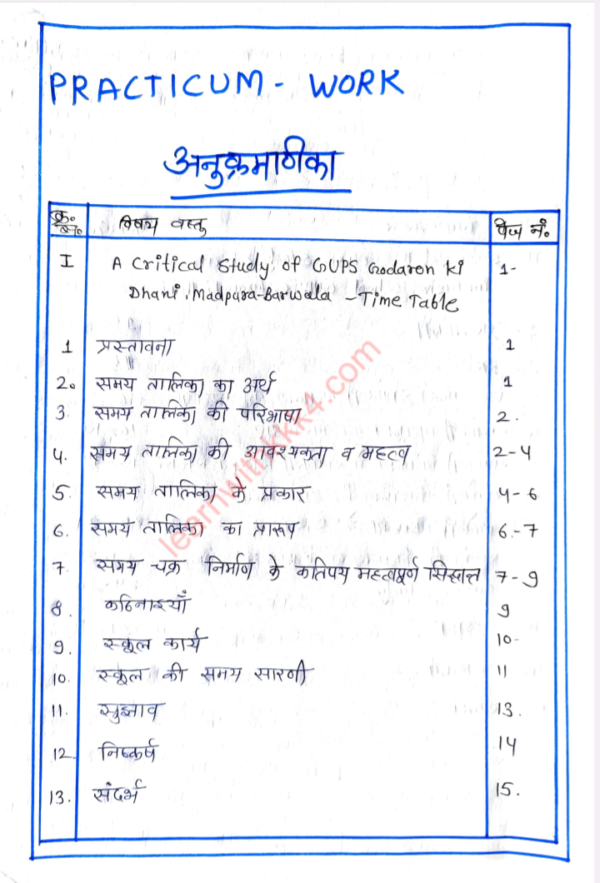 PRACTICUM - WORK
अनुक्रमाणीका
क्र. सं. विषय वस्तु पेज नं.
I A Critical Study of GUPS Godaron ki 1-
Dhani, Madpura-Barwala - Time Table
1 प्रस्तावना 1
2. समय तालिका का अर्थ 1
3. समय तालिका की परिभाषा 2.
4. समय तालिका की आवश्यकता व महत्व 2-4
5. समय तालिका के प्रकार 4-6
6. समय तालिका का प्रारूप 6-7
7. समय चक्र निर्माण के कतिपय महत्वपूर्ण सिद्धान्त 7-9
8. कठिनाइयाँ 9
9. स्कूल कार्य 10-
10. स्कूल की समय सारणी 11
11. सुझाव 13.
12 निष्कर्ष 14
13. संदर्भ 15.